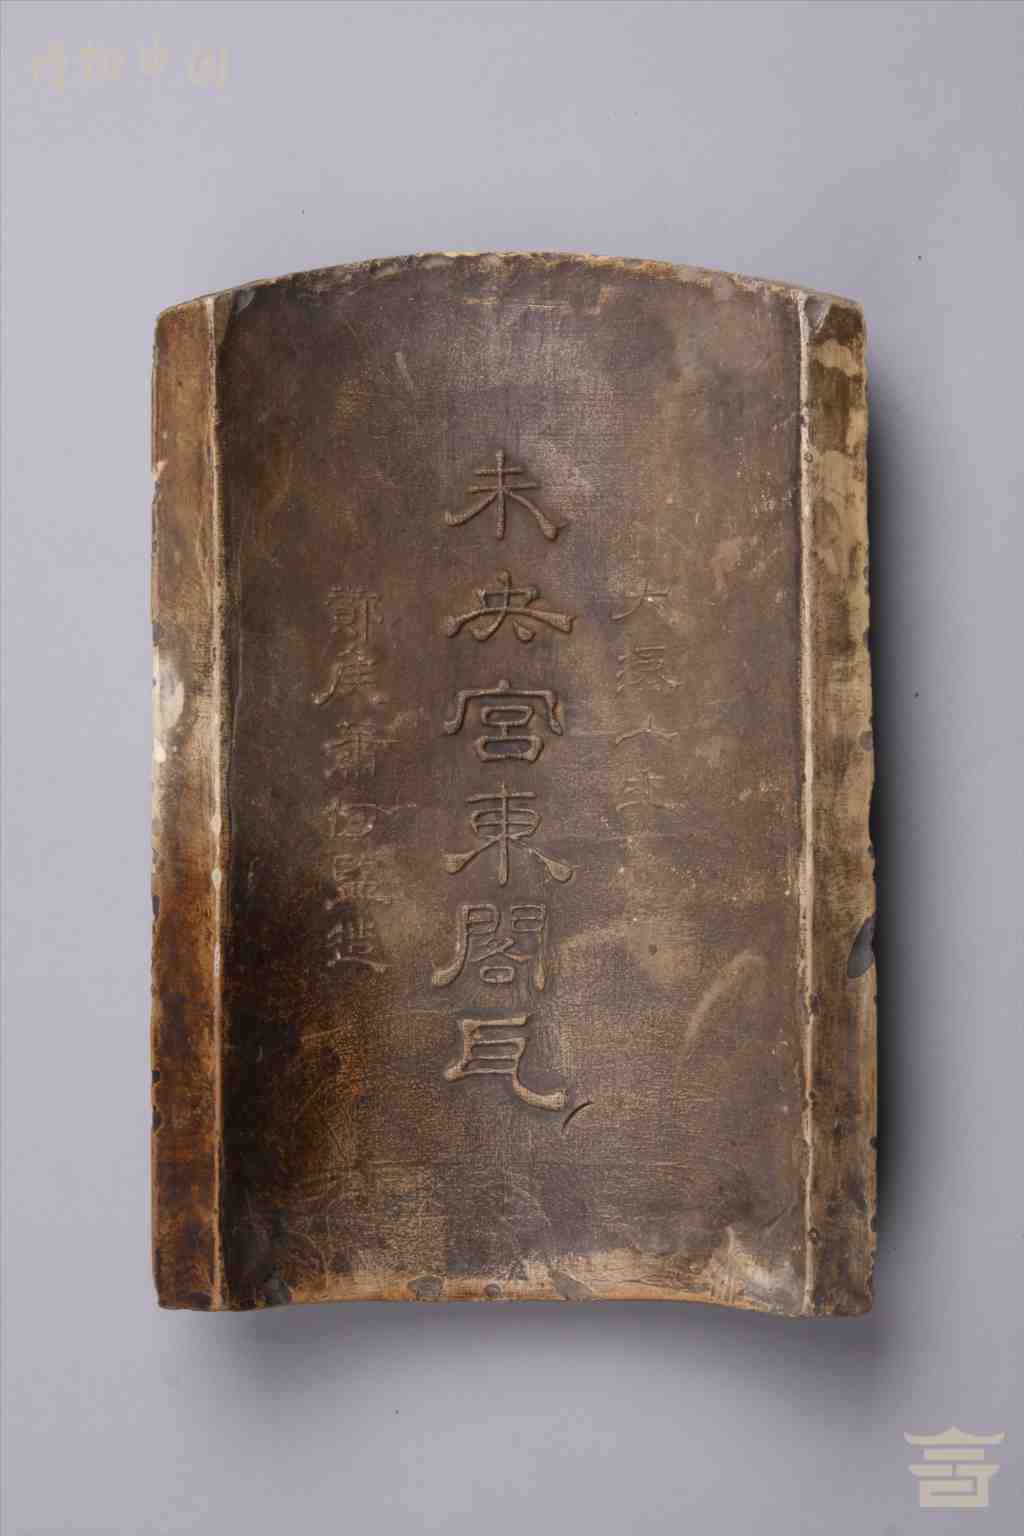 博物中国
大漢六年
未央宮東閣瓦
酇侯蕭何監造